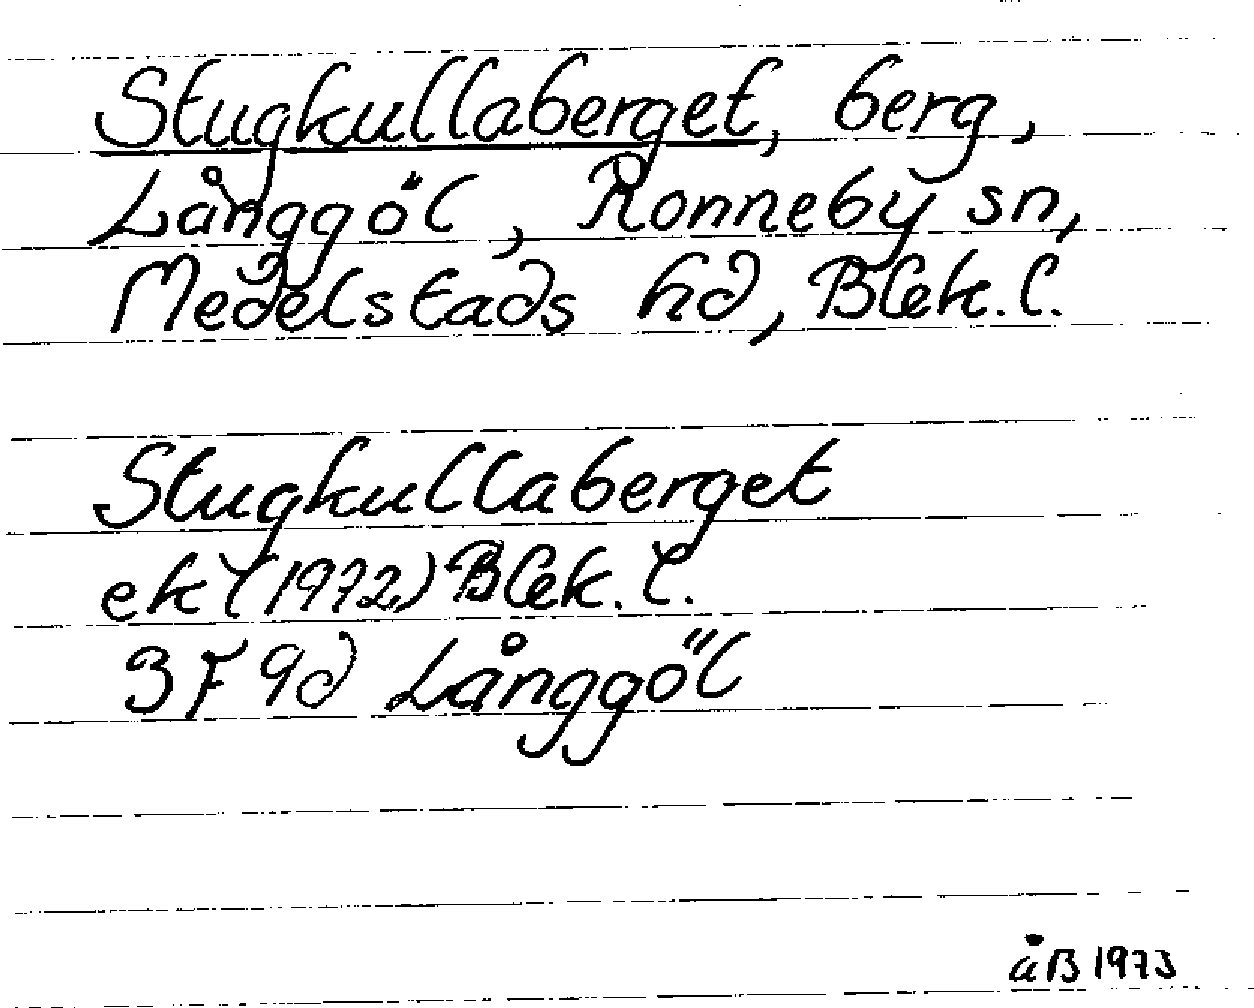 Stugkullaberget, berg,
Långgöl, Ronneby sn,
Medelstads hd, Blek. l.
Stugkullaberget
ek (1972) Blek. l.
3F 9d Långgöl
åB 1973